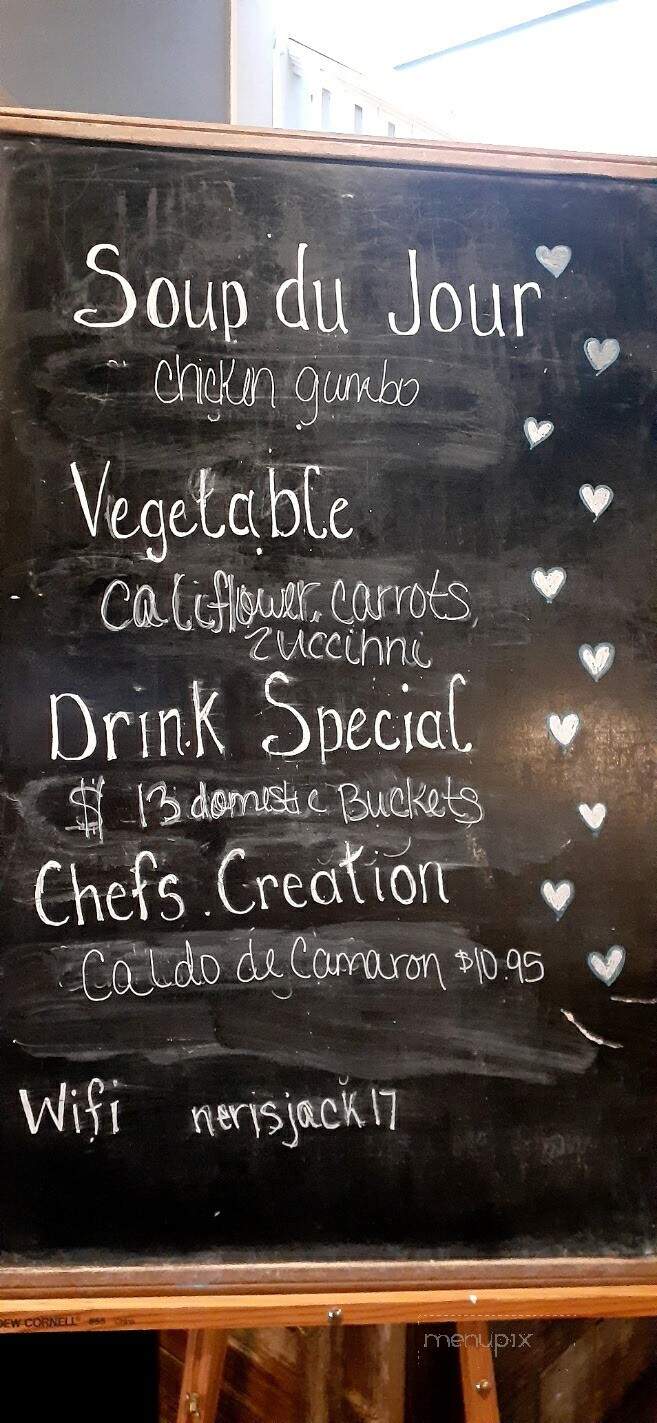 Soup du Jour
chicken gumbo
Vegetable
Califlower, carrots,
zuccihni
Drink Special
$ 13 domestic Buckets
Chefs. Creation
Caldo de Camaron $10.95
Wifi nerisjack17
DEW CORNELL
menupix